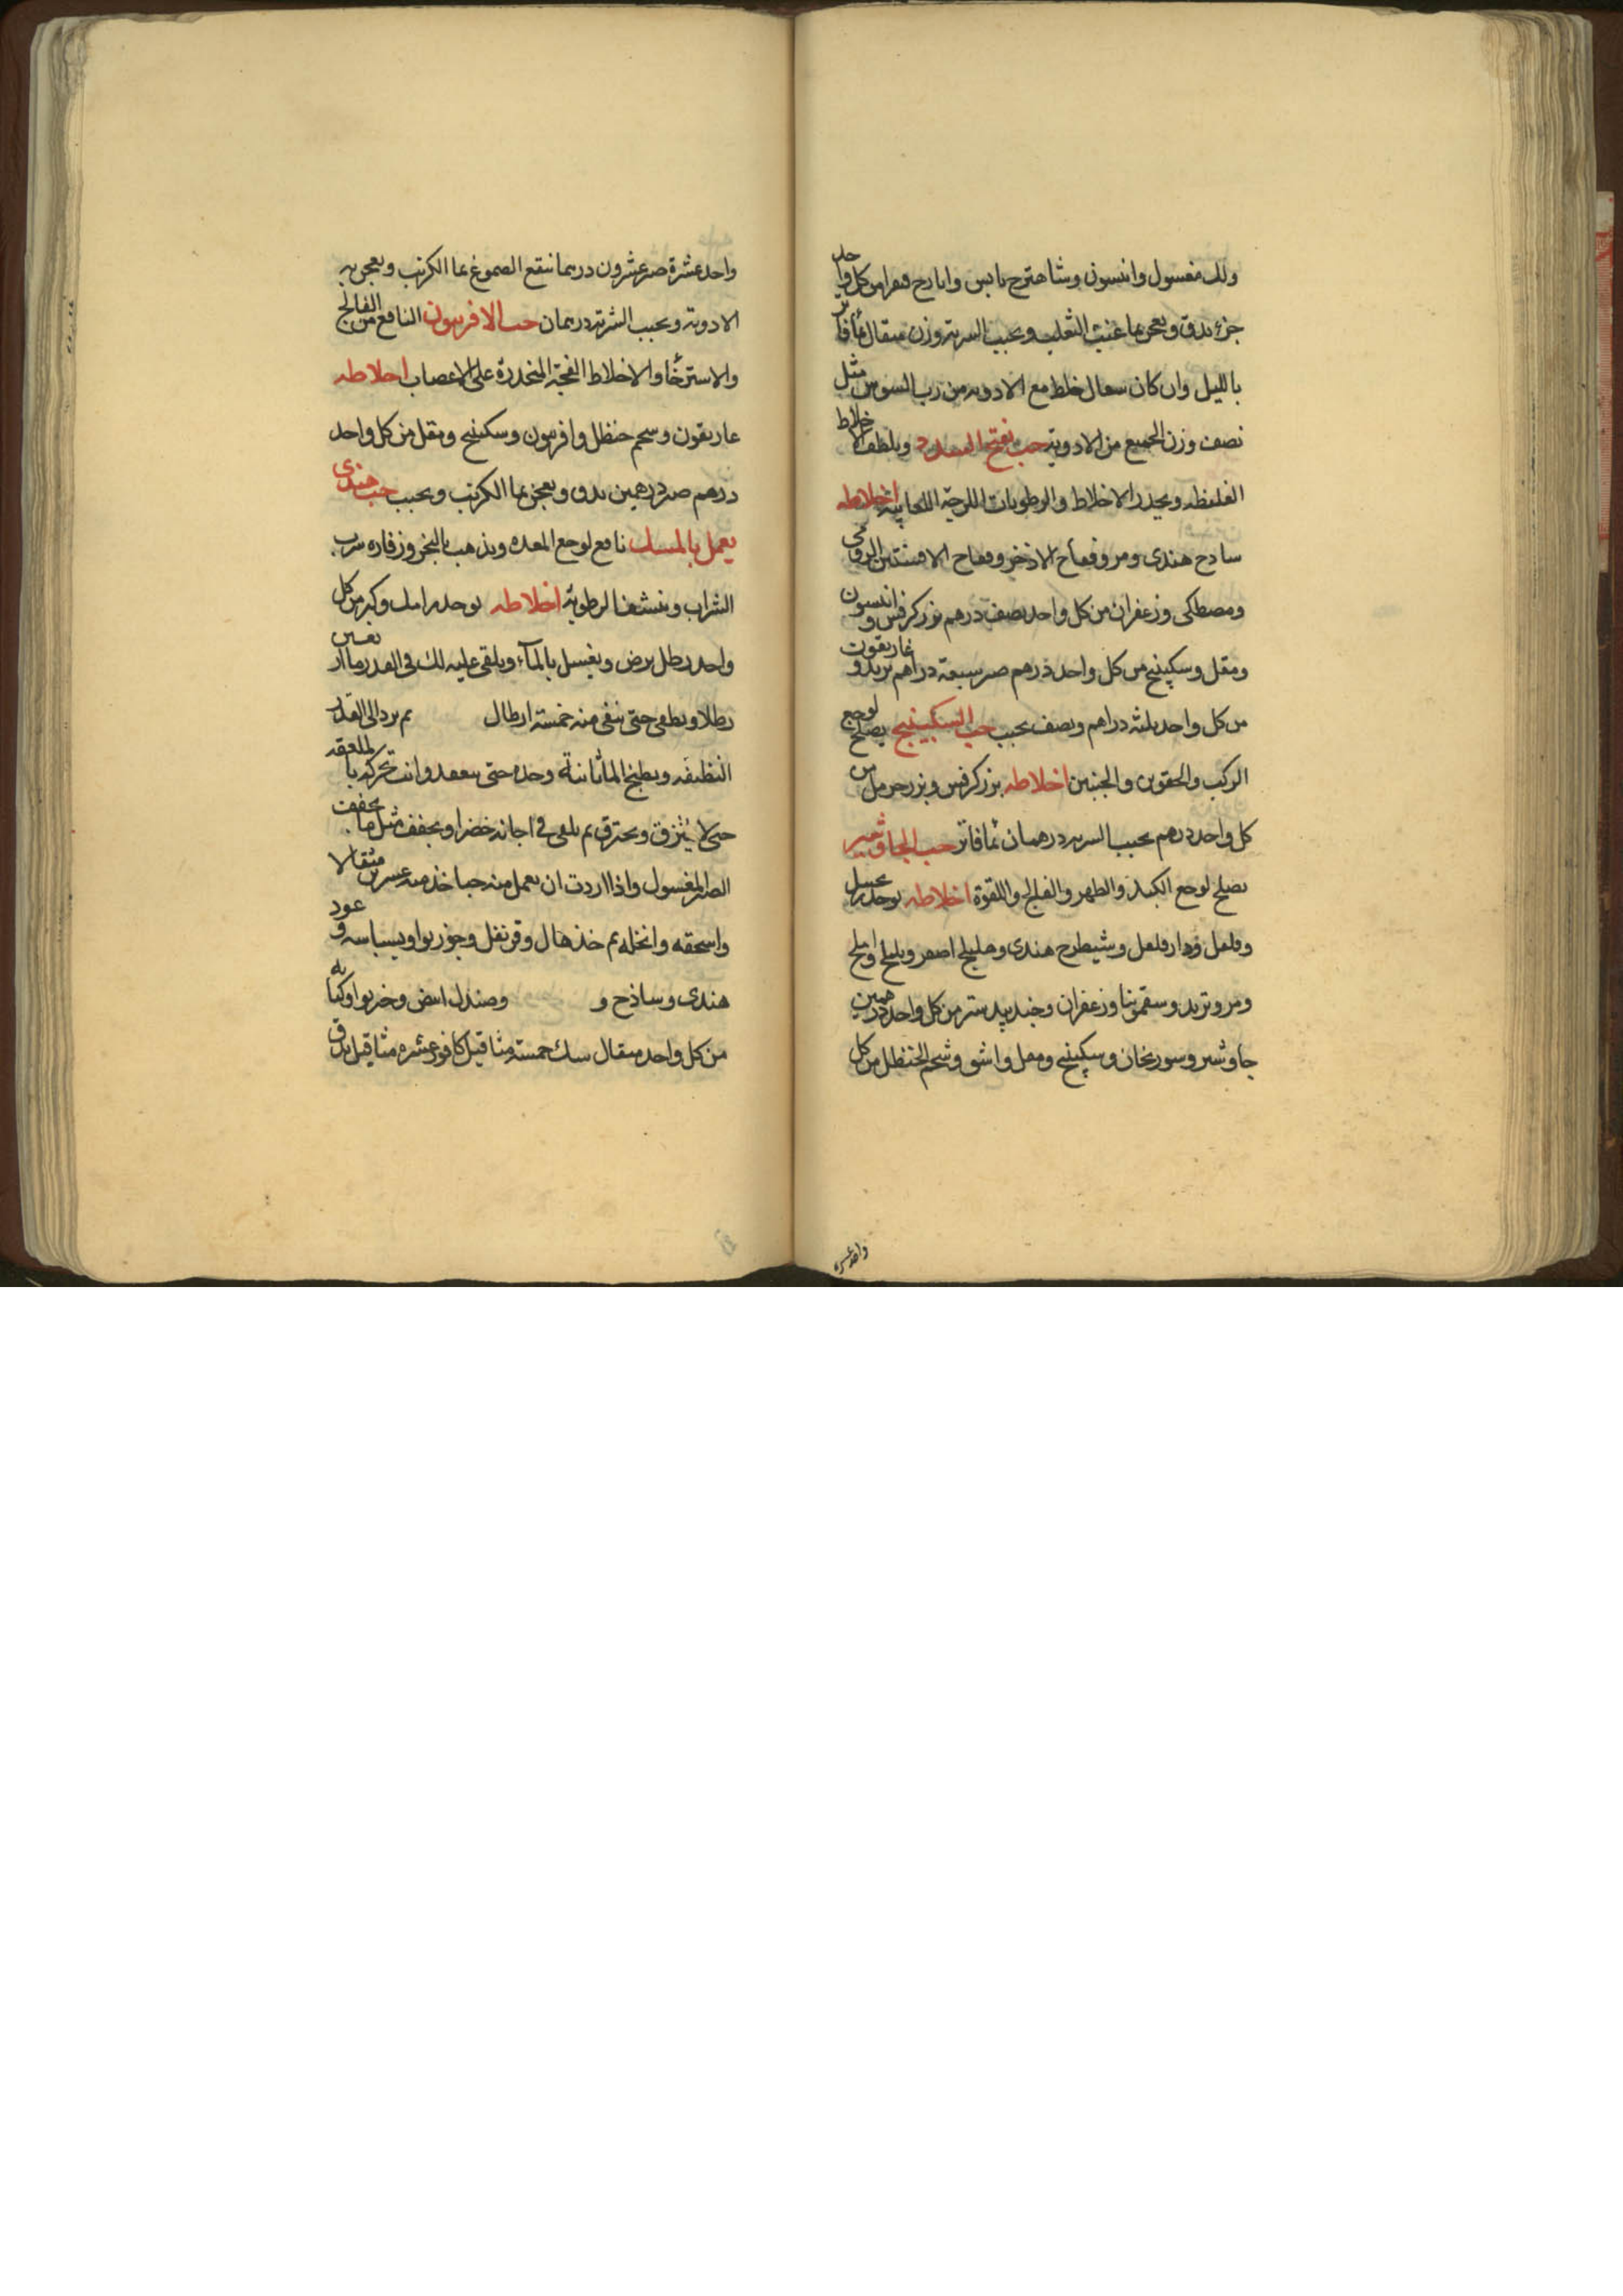 ولك مغسول وانيسون وشاهترج يابس وايارج فيقرا من كل واحد
جزء يدق ويعجن بما عنب الثعلب ويحبب الشربة وزن مثقال بما فاتر
بالليل وان كان سعال خلط مع الادويه من رب السوس مثل
نصف وزن الجميع من الادوية حب يفتح السدد ويلطف الاخلاط
الغليظه ويحدر الاخلاط والرطوبات اللزجة اللعابية اخلاطه
سادج هندى ومر وفقاح الاذخر وفقاح الافسنتين الرومى
ومصطكى وزعفران من كل واحد نصف درهم بزر كرفس وانيسون
ومقل وسكبينج من كل واحد درهم صبر سبعة دراهم تربد وغاريقون
من كل واحد ثلثه دراهم ونصف يحبب حب السكبينج يصلح لوجع
الركب والحقوين والجنبين اخلاطه بزر كرفس وبزر حرمل من
كل واحد درهم يحبب الشربه درهمان بما فاتر حب الجاوشير
يصلح لوجع الكبد والظهر والفالج واللقوة اخلاطه يوخذ
وفلفل ودارفلفل وشيطرج هندى وهليلج اصفر وبليلج واملج
ومر وتربد وسقمونيا وزعفران وجندبيدستر من كل واحد درهمين
جاوشير وسورنجان وسكبينج ومقل واشق وشحم الحنظل من كل
واحد عشره
واحد عشرة صبر عشرون درهما تنقع الصموغ بما الكرنب ويعجن به
الادوية ويحبب الشربة درهمان حب الافربيون النافع من الفالج
والاسترخا والاخلاط الفجة المنحدرة على الاعصاب اخلاطه
غاريقون وشحم حنظل وافربيون وسكبينج ومقل من كل واحد
درهم صبر درهمين يدق ويعجن بما الكرنب ويحبب حب هندى
يعمل بالمسك نافع لوجع المعده ويذهب بالبخر وزفاره شرب
الشراب وينشف الرطوبة اخلاطه يوخذ من كل
واحد رطل يرض ويغسل بالمآء ويلقى عليه لك فى القدر
رطلا ويطبخ حتى يبقى منه خمسة ارطال ثم يرد الى القدر
النظيفه ويطبخ الما ثانية وحده حتى ينعقد وانت تحركه بالملعقه
حتى لا يلتزق ويحترق ثم يلقى فى اجانه خضرا ويجفف مثل ما يجفف
الصبر المغسول واذا اردت ان يعمل منه حبا خذ منه عشرين مثقالا
واسحقه وانخله ثم خذ هال وقرنفل وجوزبوا وبسباسه وعود
هندى وساذج و وصندل ابيض وخربوا وكبابه
من كل واحد مثقال سك خمسة مثاقيل كافور عشره مثاقيل يدق